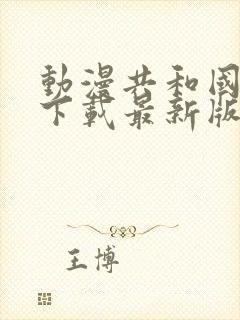 動漫共和國
下載最新版
王博